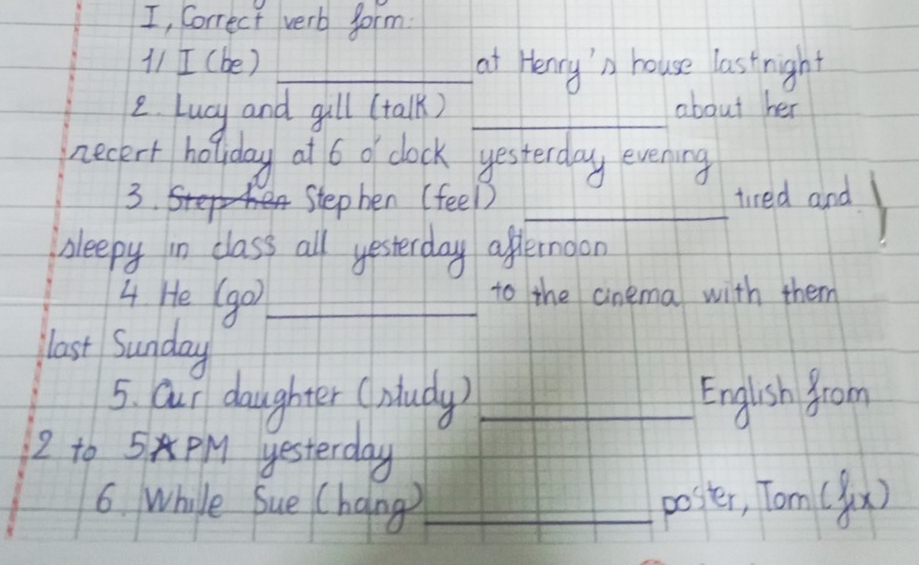 I, Correct verb form:
1/ I (be) __________ at Henry's house last night
2. Lucy and gill (talk) __________ about her
recert holiday at 6 o'clock yesterday evening
3. Stephen Stephen (feel) __________ tired and
sleepy in class all yesterday afternoon
4 He (go) __________ to the cinema with them
last Sunday
5. Our daughter (study) __________ English from
2 to 5 PM yesterday
6. While Sue (hang) __________ poster, Tom (fix)